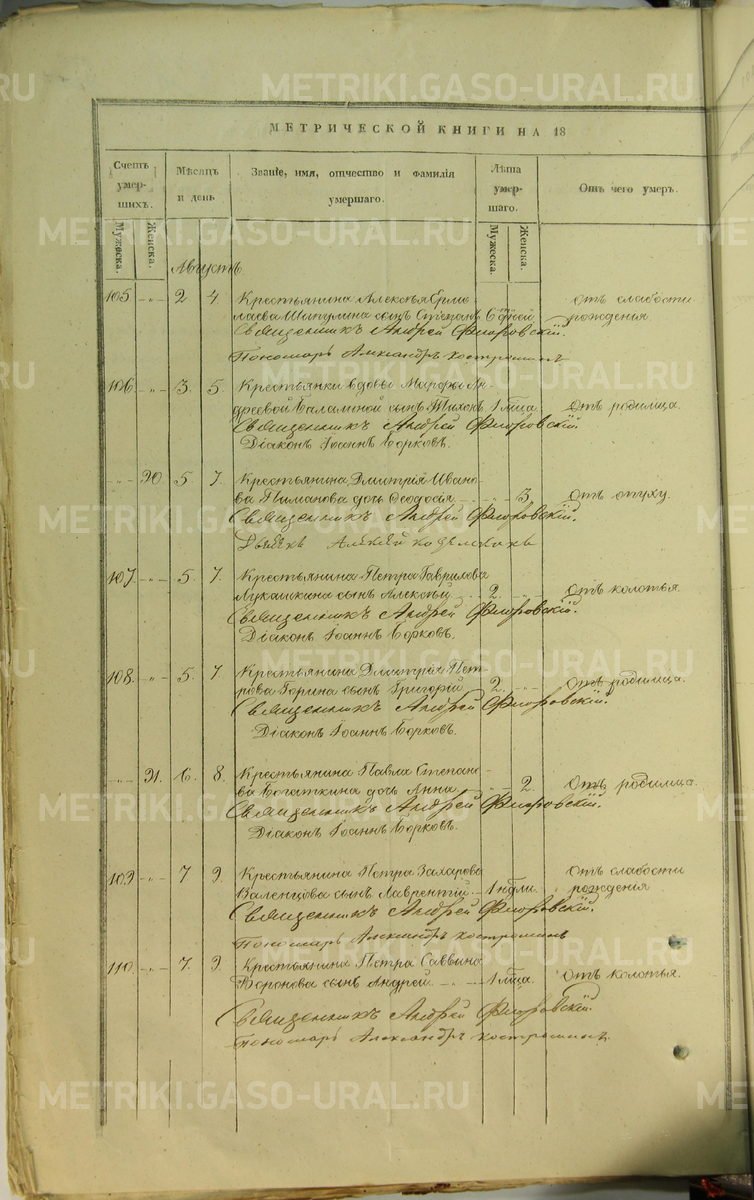 МЕТРИЧЕСКОЙ КНИГИ НА 18
Счетъ умер-шихъ.
Мужеска.
Женска.
Мѣсяцъ и день
Званіе, имя, отчество и фамилія умершаго.
Лѣта умер-шаго.
Мужеска.
Женска.
Отъ чего умеръ.
Августъ
105 " 2 4 Крестьянина Алексѣя Ерми- отъ слабости
лаева Шипулина сынъ Степанъ 6 дней рожденія
Священникъ Андрей Флоровскій.
Пономарь Александръ Костроминъ
106 " 3. 5. Крестьянки вдовы Марфы Ан-
дреевой Баламной сынъ Тихонъ 1 мѣсца отъ родимца.
Священникъ Андрей Флоровскій.
Діаконъ Іоаннъ Борковъ.
" 90. 5 7. Крестьянина Дмитрія Ивано-
ва Пиманова дочь Ѳеодосія 3. отъ опуху.
Священникъ Андрей Флоровскій.
Алексѣй
107. " 5. 7. Крестьянина Петра Гаврилова
Лукашкина сынъ Алексѣй 2. отъ колотья.
Священникъ Андрей Флоровскій.
Діаконъ Іоаннъ Борковъ.
108. " 5. 7 Крестьянина Дмитрія Пет-
рова Горина сынъ Григорій 2. отъ родимца.
Священникъ Андрей Флоровскій.
Діаконъ Іоаннъ Борковъ.
" 91. 6. 8. Крестьянина Павла Степано-
ва Богаткина дочь Анна 2. отъ родимца.
Священникъ Андрей Флоровскій.
Діаконъ Іоаннъ Борковъ.
109 " 7 9. Крестьянина Петра Захарова отъ слабости
Валенцова сынъ Лаврентій 1 нѣдли. рожденія
Священникъ Андрей Флоровскій.
Пономарь Александръ Костроминъ
110. " 7. 9. Крестьянина Петра Саввина
Воронова сынъ Андрей 1 мѣсца. отъ колотья.
Священникъ Андрей Флоровскій.
Пономарь Александръ Костроминъ.
METRIKI.GASO-URAL.RU